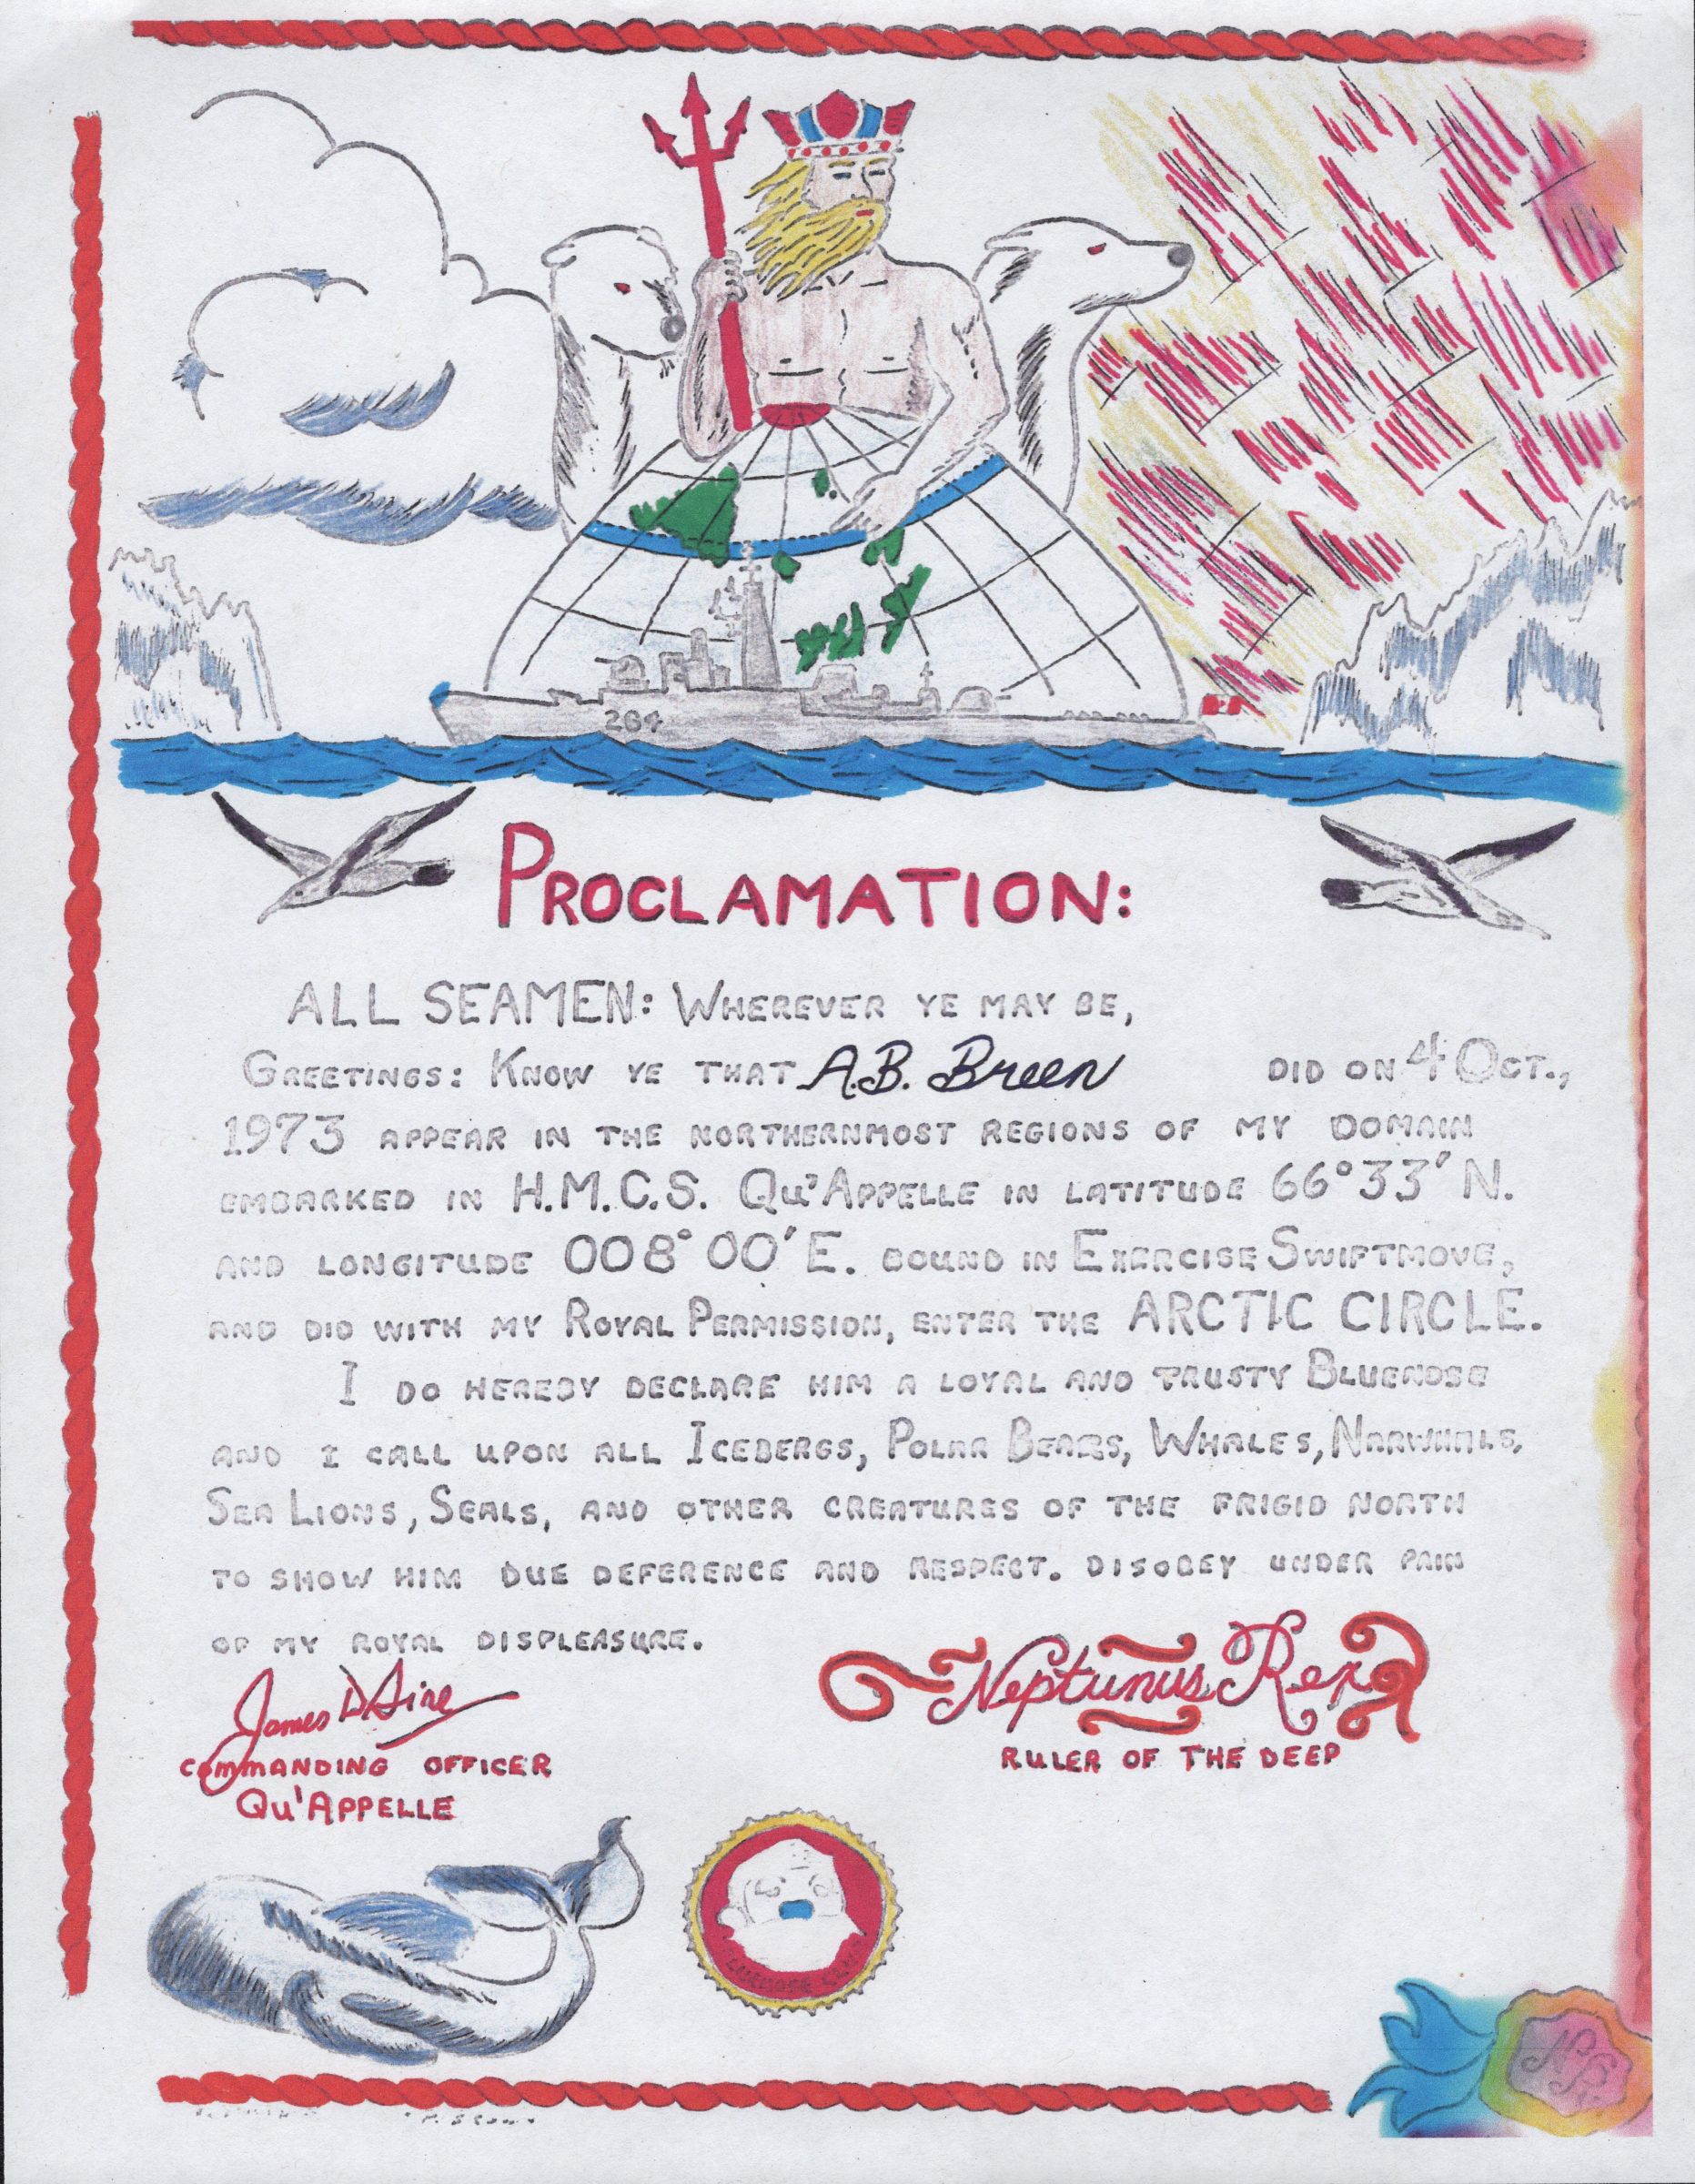 264
PROCLAMATION:
ALL SEAMEN: WHEREVER YE MAY BE,
GREETINGS: KNOW YE THAT A.B. Breen DID ON 4 OCT.,
1973 APPEAR IN THE NORTHERNMOST REGIONS OF MY DOMAIN
EMBARKED IN H.M.C.S. QU'APPELLE IN LATITUDE 66°33'N.
AND LONGITUDE 008°00'E. BOUND IN EXERCISE SWIFTMOVE,
AND DID WITH MY ROYAL PERMISSION, ENTER THE ARCTIC CIRCLE.
I DO HEREBY DECLARE HIM A LOYAL AND TRUSTY BLUENOSE
AND I CALL UPON ALL ICEBERGS, POLAR BEARS, WHALES, NARWHALS,
SEA LIONS, SEALS, AND OTHER CREATURES OF THE FRIGID NORTH
TO SHOW HIM DUE DEFERENCE AND RESPECT. DISOBEY UNDER PAIN
OF MY ROYAL DISPLEASURE.
James
COMMANDING OFFICER
QU'APPELLE
Neptunus Rex
RULER OF THE DEEP
NR